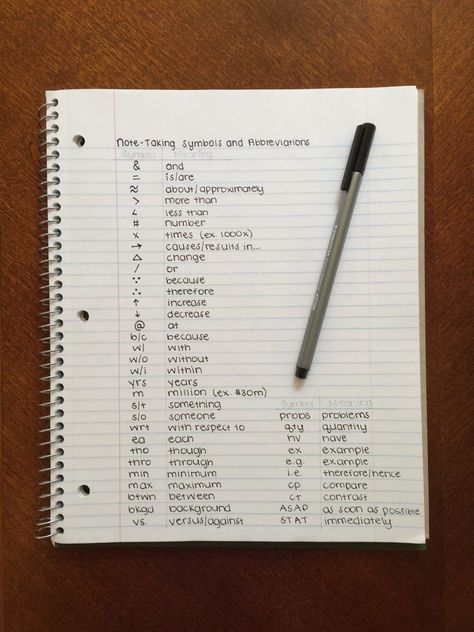 Note-Taking Symbols and Abbreviations
Symbol Meaning
& and
= is/are
≈ about/approximately
> more than
< less than
# number
x times (ex. 1000x)
→ causes/results in...
△ change
/ or
∵ because
∴ therefore
↑ increase
↓ decrease
@ at
b/c because
w/ with
w/o without
w/i within
yrs years
m million (ex. $30m)
s/t something Symbol Meaning
s/o someone probs problems
wrt with respect to qty quantity
ea each hv have
tho though ex example
thro through e.g. example
min minimum i.e. therefore/hence
max maximum cp compare
btwn between ct contrast
bkgd background ASAP as soon as possible
vs. versus/against STAT immediately